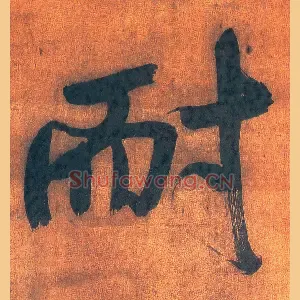 耐
Shufawang.CN